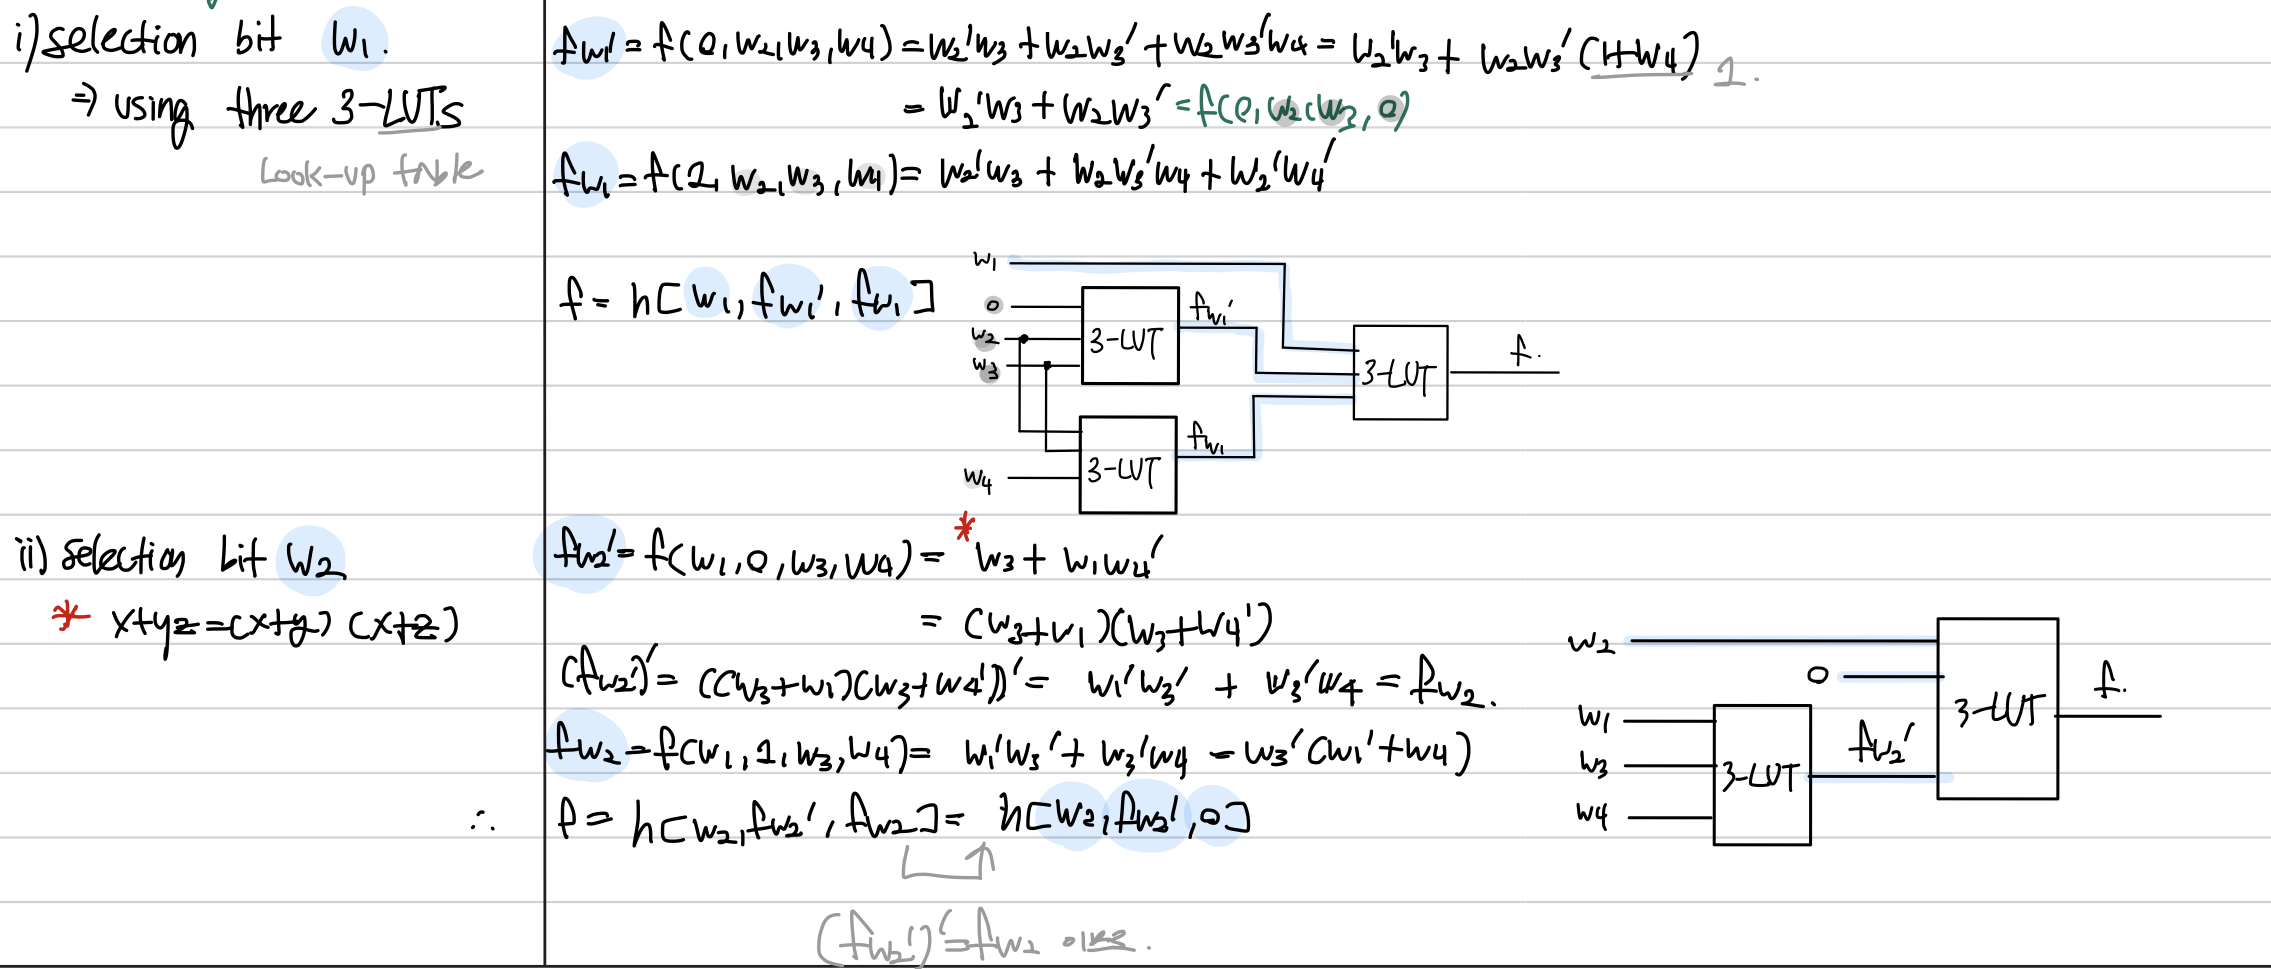 i) selection bit W₁.
⇒ using three 3-LUTs
Look-up table
fw₁' = f(0, w₂, w₃, w4) = w₂'w₃ + w₂w₃' + w₂w₃'w4 = w₂'w₃ + w₂w₃'(1+w4) 1.
= w₂'w₃ + w₂w₃' = f(0, w₂, w₃, 0)
fw₁ = f(1, w₂, w₃, w4) = w₂'w₃ + w₂w₃'w4 + w₂'w4'
f = h[w₁, fw₁', fw₁]
w₁
0
w₂
w₃
3-LUT
fw₁'
3-LUT
f.
w4
3-LUT
fw₁
ii) selection bit w₂
* x+yz=(x+y)(x+z)
fw₂' = f(w₁, 0, w₃, w4) = * w₃ + w₁w4'
= (w₃+w₁)(w₃+w4')
(fw₂')' = ((w₃+w₁)(w₃+w4'))' = w₁'w₃' + w₃'w4 = fw₂.
fw₂ = f(w₁, 1, w₃, w4) = w₁'w₃' + w₃'w4 = w₃'(w₁'+w4)
∴ f = h[w₂, fw₂', fw₂] = h[w₂, fw₂', 0]
(fw₂')' = fw₂
w₂
0
w₁
w₃
w4
3-LUT
fw₂'
3-LUT
f.